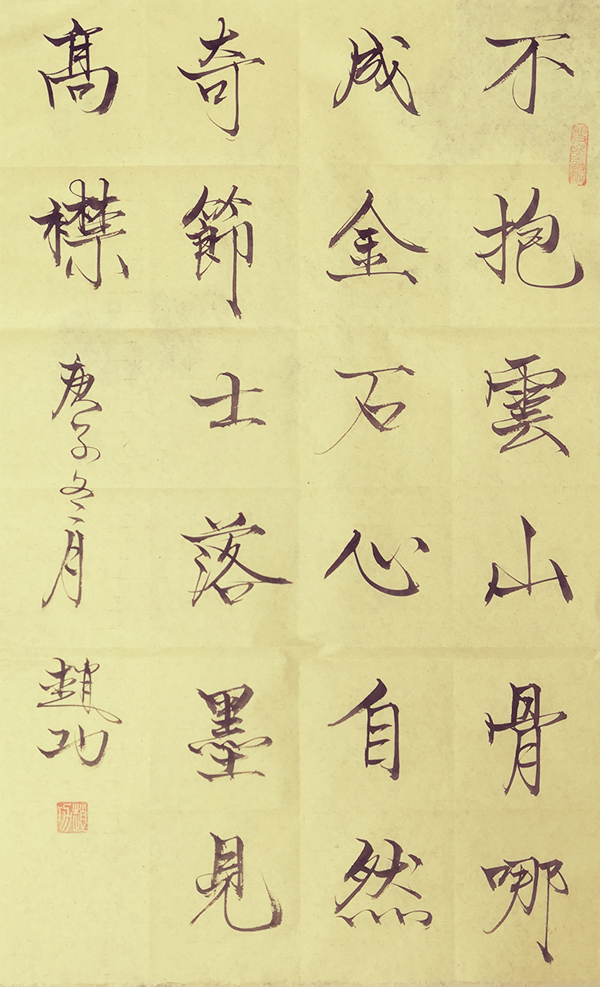 不抱雲山骨哪
成金石心自然
奇節士落墨見
高襟
庚子冬月
趙功